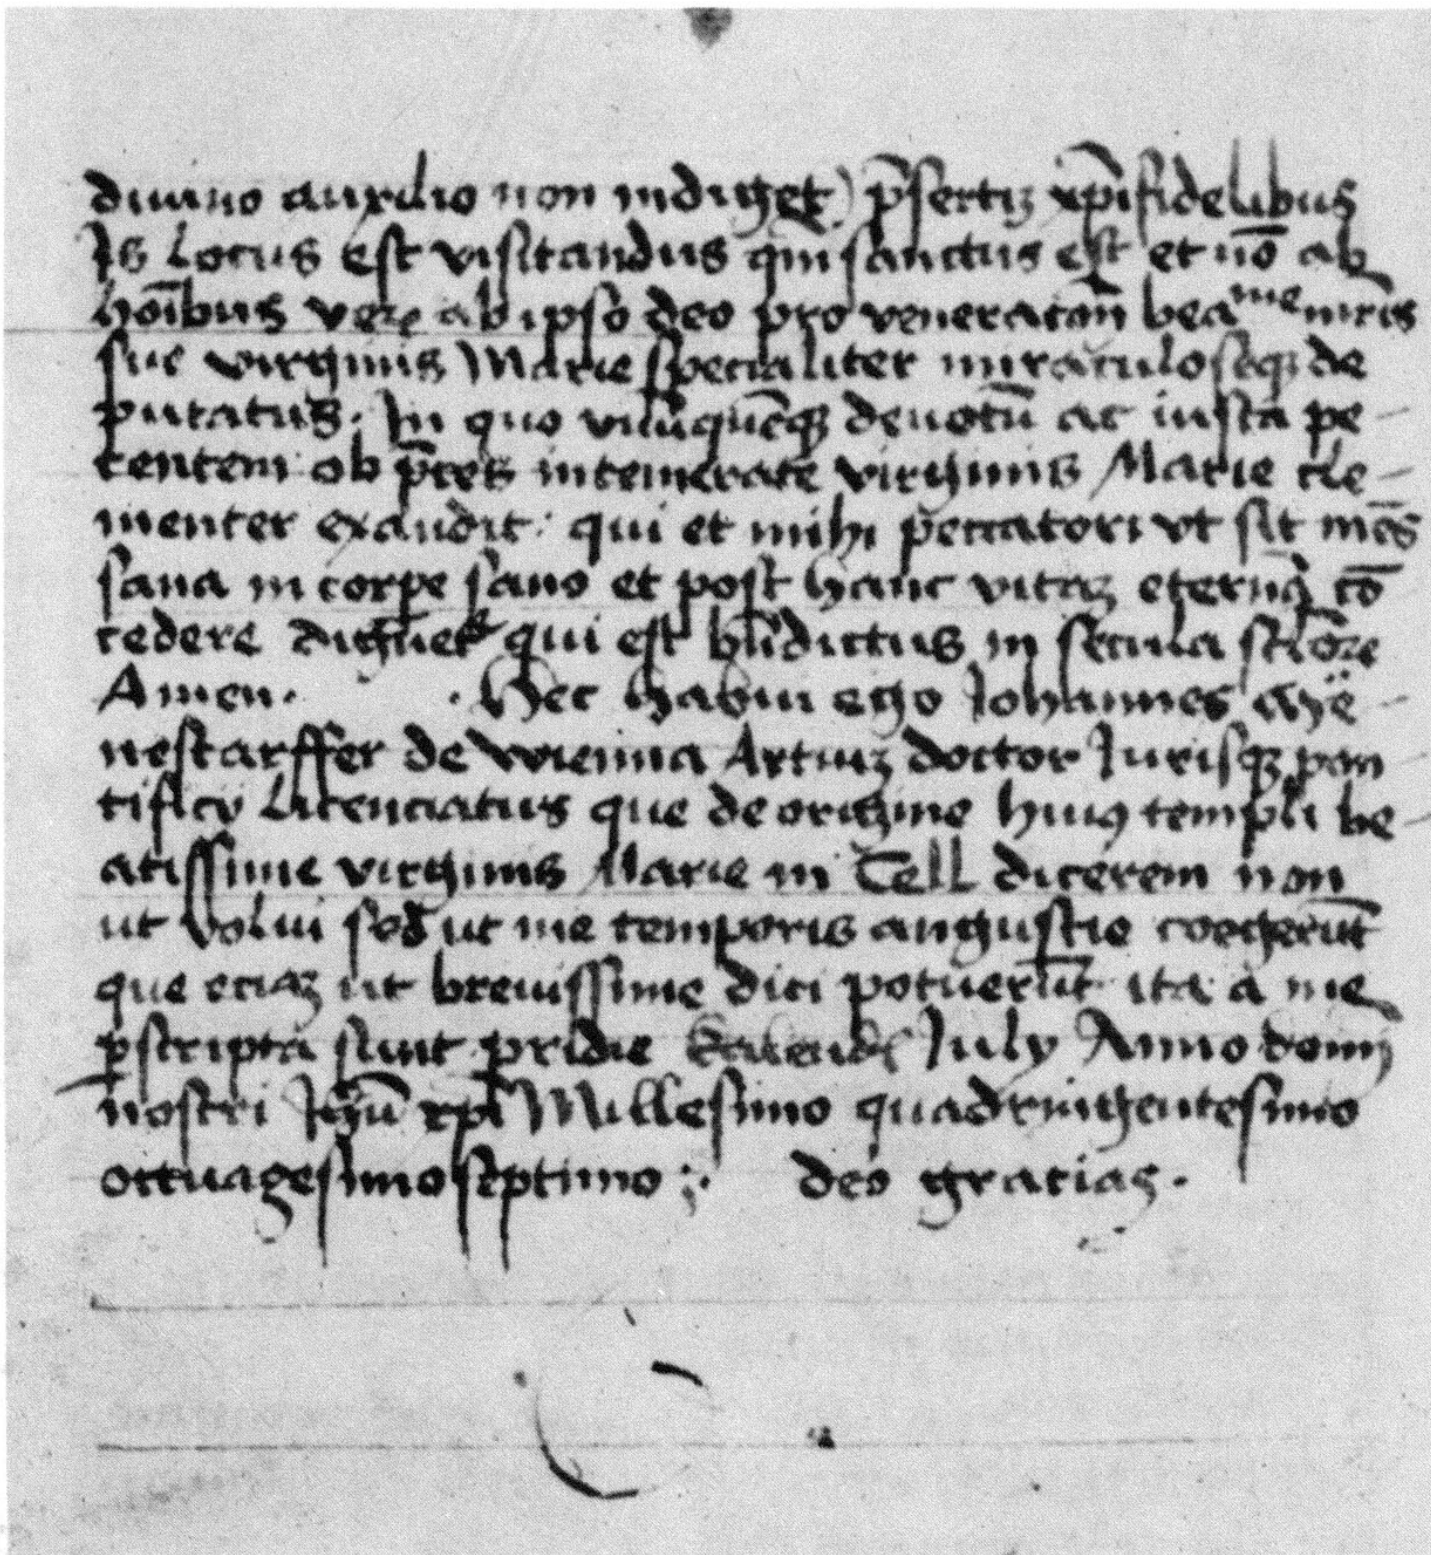 diuino auxilio non indiget) p̄sertiꝫ xp̄ifidelibus
Is Locus est visitandus qui sanctus est et nō ab
hoībus veꝝ ab ipso deo pro veneratōn̄ beaᵐᵉ mr̄is
sue virginis Marie specialiter miraculoseqꝫ de
putatus. In quo vnūquēqꝫ deuotū ac iusta pe-
tentem ob p̄ces intemerate virginis Marie cle-
menter exaudit: qui et mihi peccatori vt sit mēs
sana in corpe sano et post hanc vitaꝫ eternā cō
cedere dignet᷑ qui est bn̄dictus in secula scl̄oꝝ
Amen. . Hec habui ego Johannes aÿe-
nestarffer de wienna Artiuꝫ doctor Jurisqꝫ pon
tificÿ Licenciatus que de origine huiꝰ templi be-
atissime virginis Marie in Cell dicerem non
ut volui sed ut me temporis angustie coegerūt
que eciaꝫ ut breuissime dici potuerūt ita a me
p̄scripta sunt pridie kalendꝭ July Anno domī
nostri Jhū xp̄i Millesimo quadringentesimo
octuagesimo septimo ;. deo gracias.